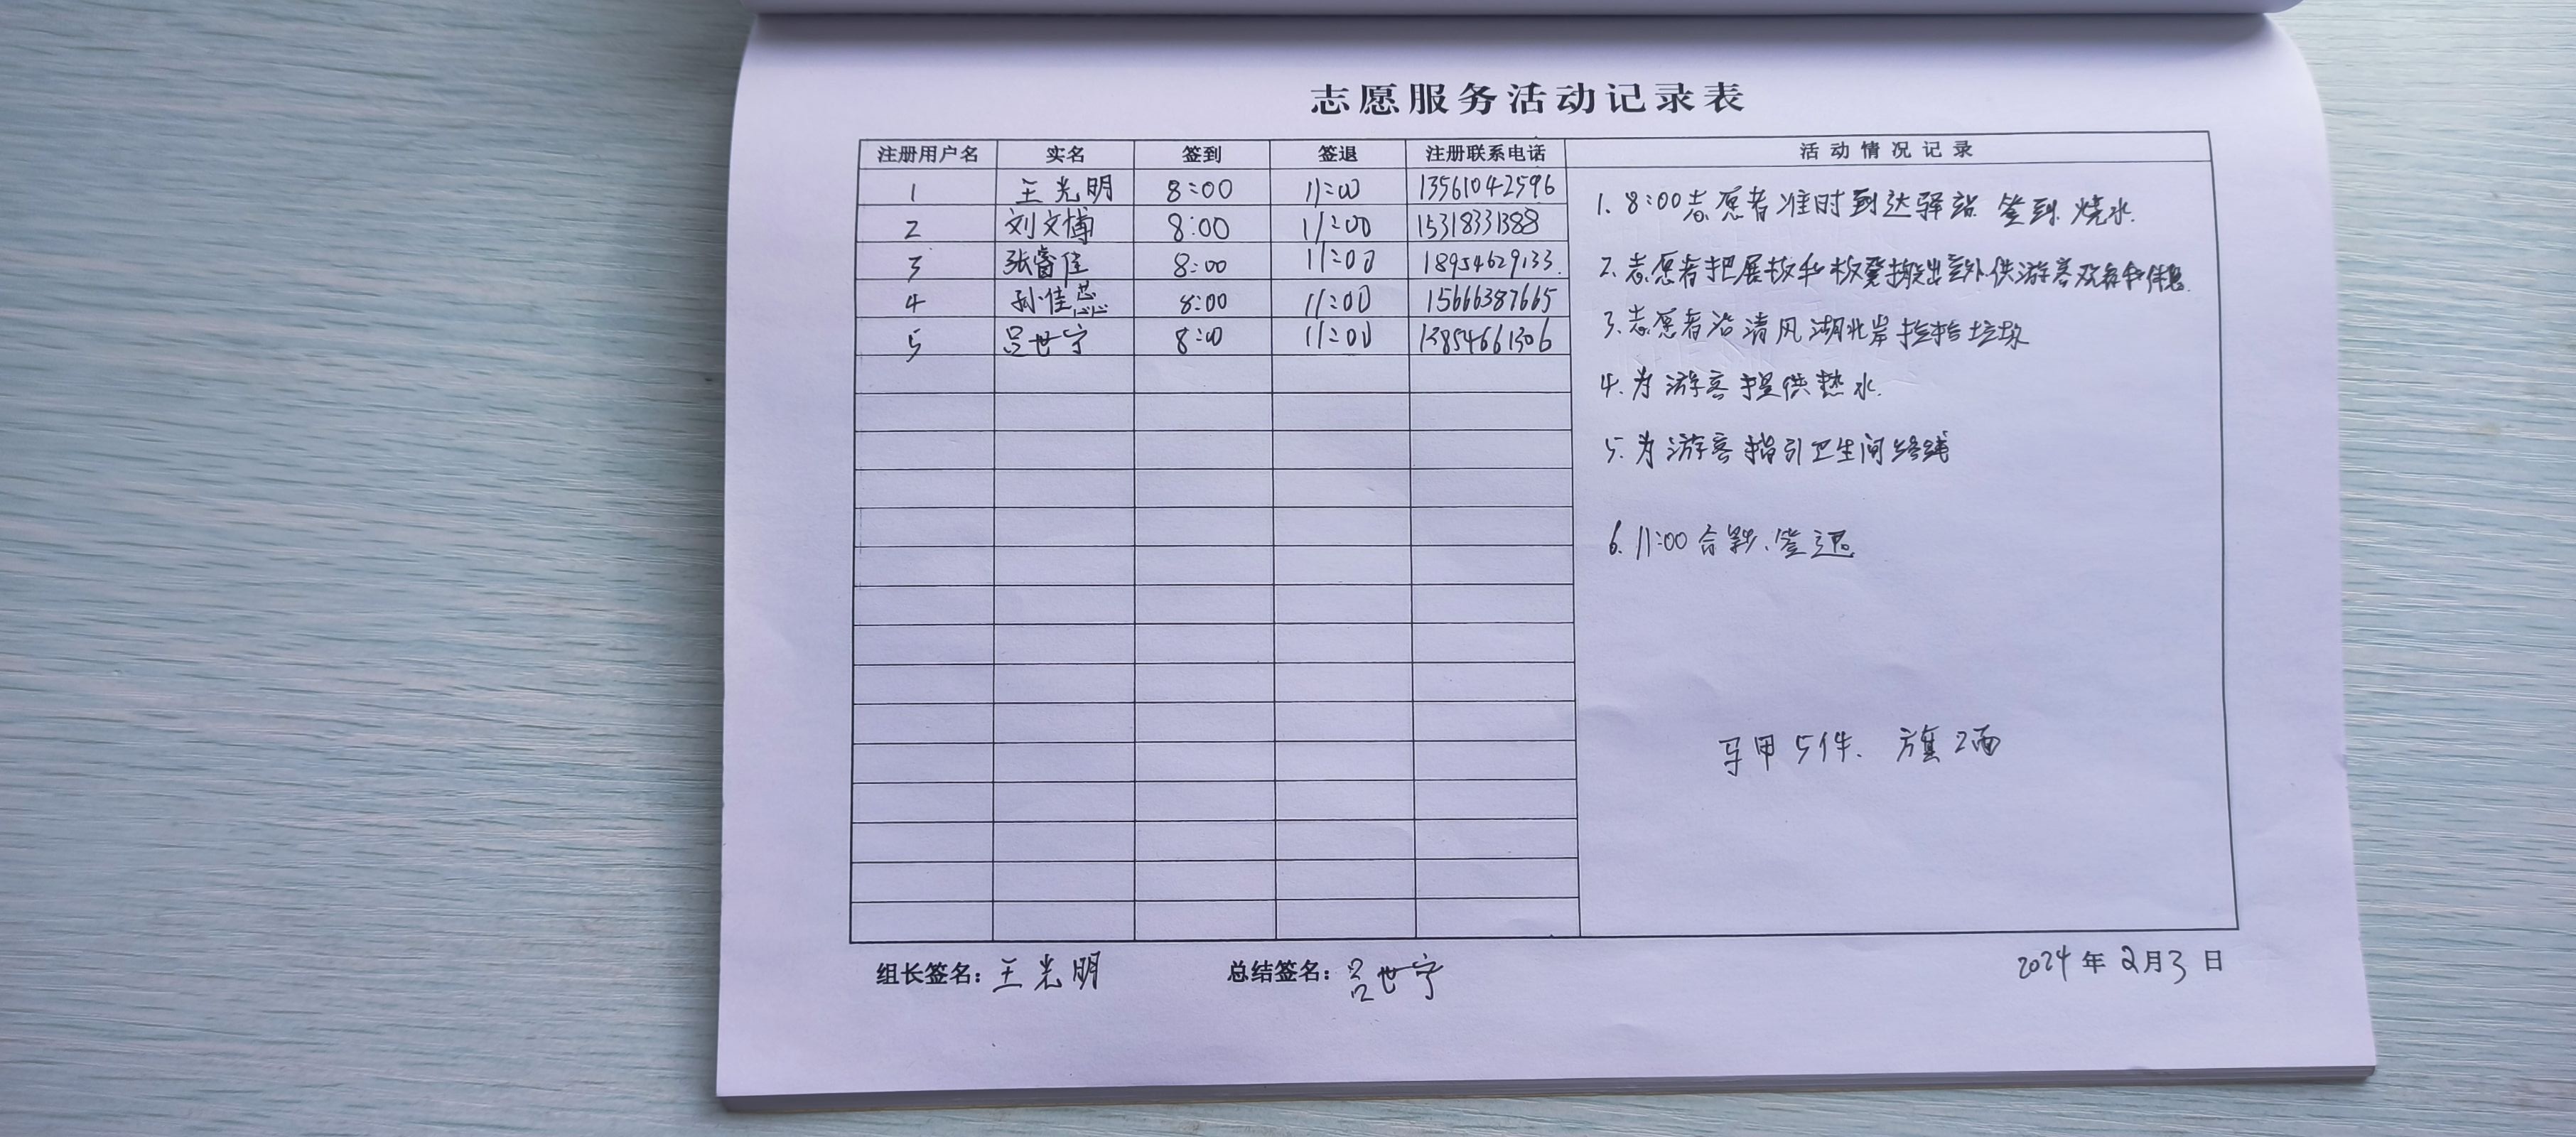 志愿服务活动记录表
注册用户名 实名 签到 签退 注册联系电话 活动情况记录
1 王光明 8:00 11:00 13561042596
2 刘文博 8:00 11:00 15318331388
3 张睿佳 8:00 11:00 18954629133
4 孙佳蕊 8:00 11:00 15666387665
5 吕世宁 8:00 11:00 13854661306
1. 8:00志愿者准时到达驿站 签到 烧水.
2. 志愿者把展板和板凳搬出室外供游客观看和休息.
3. 志愿者沿清风湖北岸捡拾垃圾
4. 为游客提供热水.
5. 为游客指引卫生间路线
6. 11:00 合影、签退
马甲5件、旗2面
组长签名: 王光明 总结签名: 吕世宁 2024年2月3日